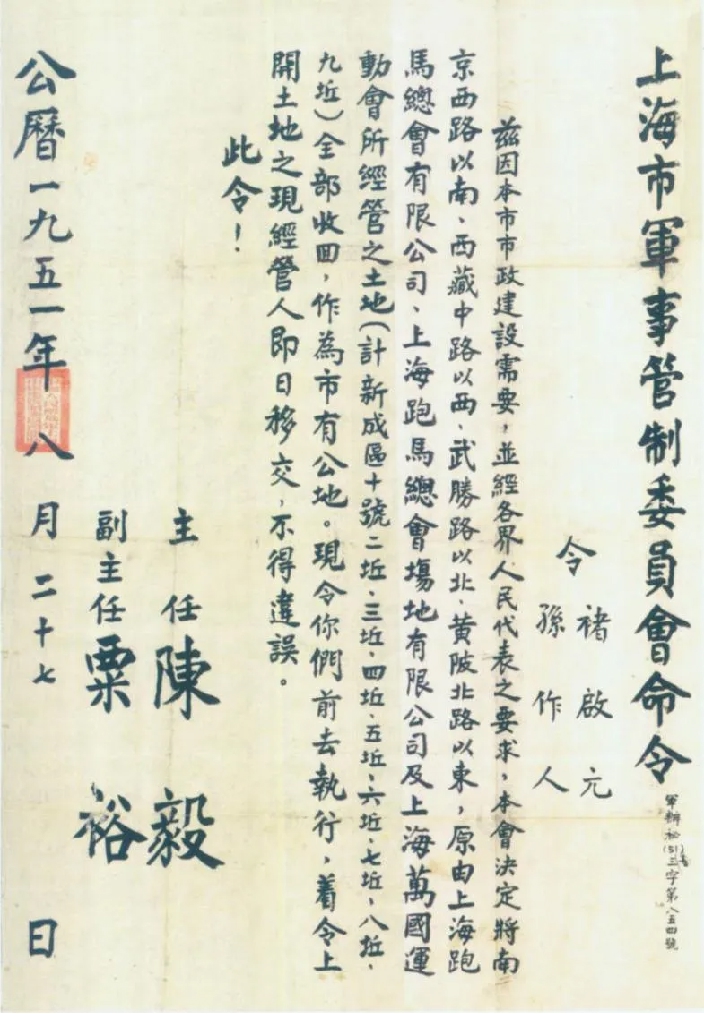 上海市軍事管制委員會命令
軍辦秘(51)三字第八五四號
令
褚啟元
孫作人
兹因本市市政建設需要，並經各界人民代表之要求，本會決定將南
京西路以南、西藏中路以西、武勝路以北、黄陂北路以東，原由上海跑
馬總會有限公司、上海跑馬總會場地有限公司及上海萬國運
動會所經管之土地(計新成區十號二坵、三坵、四坵、五坵、六坵、七坵、八坵、
九坵)全部收回，作為市有公地。現令你們前去執行，着令上
開土地之現經管人即日移交，不得違誤。
此令！
主任陳毅
副主任粟裕
公曆一九五一年八月二十七日